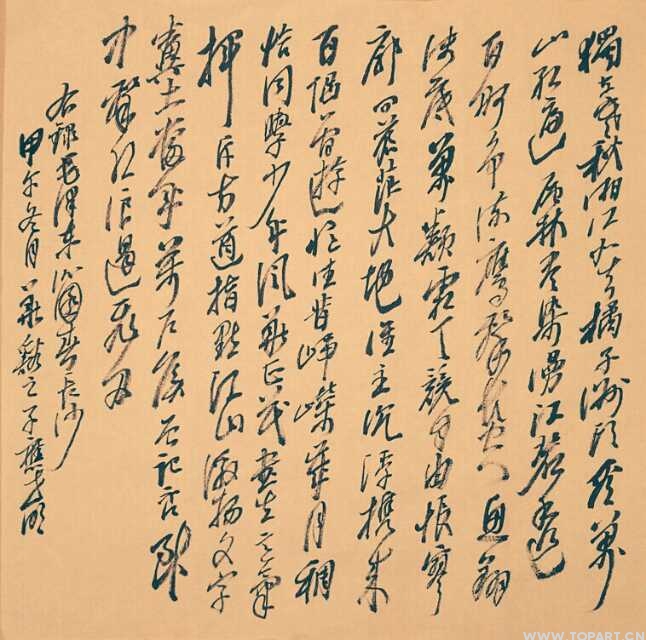 獨立寒秋湘江北去橘子洲頭看萬
山紅遍層林盡染漫江碧透
百舸爭流鷹擊長空魚翔
淺底萬類霜天競自由悵寥
廓問蒼茫大地誰主沉浮攜來
百侶曾遊憶往昔崢嶸歲月稠
恰同學少年風華正茂書生意氣
揮斥方遒指點江山激揚文字
糞土當年萬戶侯曾記否到
中擊水浪遏飛舟
右錄毛澤東沁園春長沙
甲午冬月 谿之子
WWW.TOPART.CN